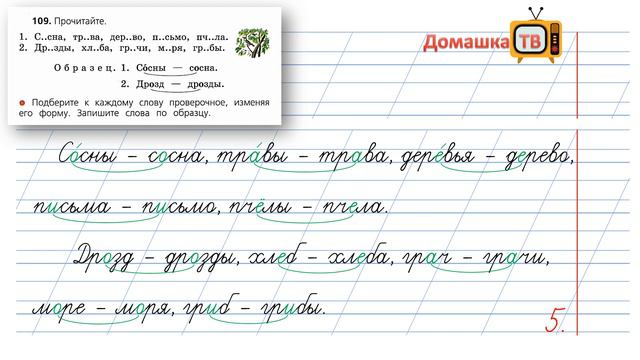 109. Прочитайте.
1. С..сна, тр..ва, дер..во, п..сьмо, пч..ла.
2. Др..зды, хл..ба, гр..чи, м..ря, гр..бы.
Образец. 1. Со́сны — сосна.
2. Дрозд — дрозды.
Подберите к каждому слову проверочное, изменяя
его форму. Запишите слова по образцу.
Домашка ТВ
Со́сны – сосна, тра́вы – трава, дере́вья – дерево,
письма – письмо, пчёлы – пчела.
Дрозд – дрозды, хлеб – хлеба, грач – грачи,
море – моря, гриб – грибы.
5.